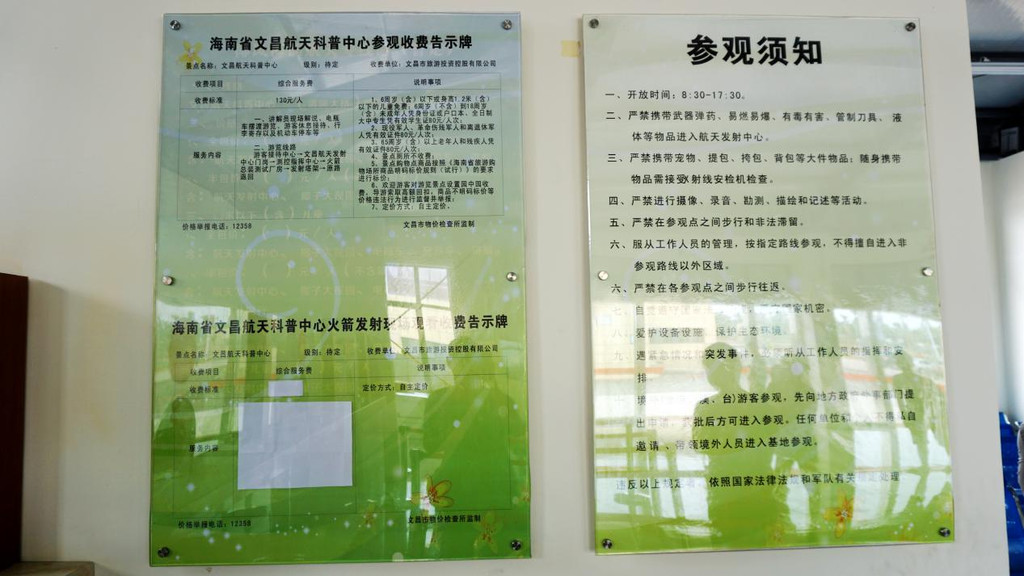 海南省文昌航天科普中心参观收费告示牌
景点名称：文昌航天科普中心 级别：待定 收费单位：文昌市旅游投资控股有限公司
收费项目 综合服务费 说明事项
收费标准 130元/人
服务内容
一、讲解员现场解说、电瓶
车摆渡游览、游客休息接待、行
李寄存以及机动车停车等
二、游览线路
游客接待中心→文昌航天发射
中心门岗→测控指挥中心→火箭
总装测试厂房→发射塔架→原路
返回
1、6周岁（含）以下或身高1.2米（含）
以下的儿童免费；6周岁（不含）到18周岁
（含）未成年人凭身份证或户口本、全日制
大中专生凭有效学生证80元/人次；
2、现役军人、革命伤残军人和离退休军
人凭有效证件80元/人次；
3、65周岁（含）以上老年人和残疾人凭
有效证件80元/人次；
4、景点厕所不收费；
5、景点购物点商品按照《海南省旅游购
物场所商品明码标价规则（试行）》的要求
进行标价；
6、欢迎游客对游览景点设置园中园收
费，导游索取高额回扣，商品不明码标价等
价格违法行为进行监督并举报；
7、定价方式：自主定价。
价格举报电话：12358 文昌市物价检查所监制
海南省文昌航天科普中心火箭发射现场观看收费告示牌
景点名称：文昌航天科普中心 级别：待定 收费单位：文昌市旅游投资控股有限公司
收费项目 综合服务费 说明事项
收费标准 定价方式：自主定价
服务内容
价格举报电话：12358 文昌市物价检查所监制
参观须知
一、开放时间：8:30-17:30。
二、严禁携带武器弹药、易燃易爆、有毒有害、管制刀具、液
体等物品进入航天发射中心。
三、严禁携带宠物、提包、挎包、背包等大件物品；随身携带
物品需接受X射线安检机检查。
四、严禁进行摄像、录音、勘测、描绘和记述等活动。
五、严禁在参观点之间步行和非法滞留。
六、服从工作人员的管理，按指定路线参观，不得擅自进入非
参观路线以外区域。
六、严禁在各参观点之间步行往返。
七、自觉 国家机密。
八、爱护设备设施，保护生态环境。
九、遇紧急情况和突发事件，必须听从工作人员的指挥和安
排。
台)游客参观，先向地方政 部门提
出申请， 批后方可进入参观。任何单位和 不得私自
邀请、带领境外人员进入基地参观。
违反以上规定者，依照国家法律法规和军队有关规定处理